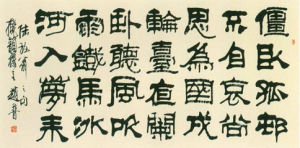 僵臥孤邨
不自哀尚
思為國戍
輪臺夜闌
臥聽風吹
雨鐵馬冰
河入夢来
陸放翁